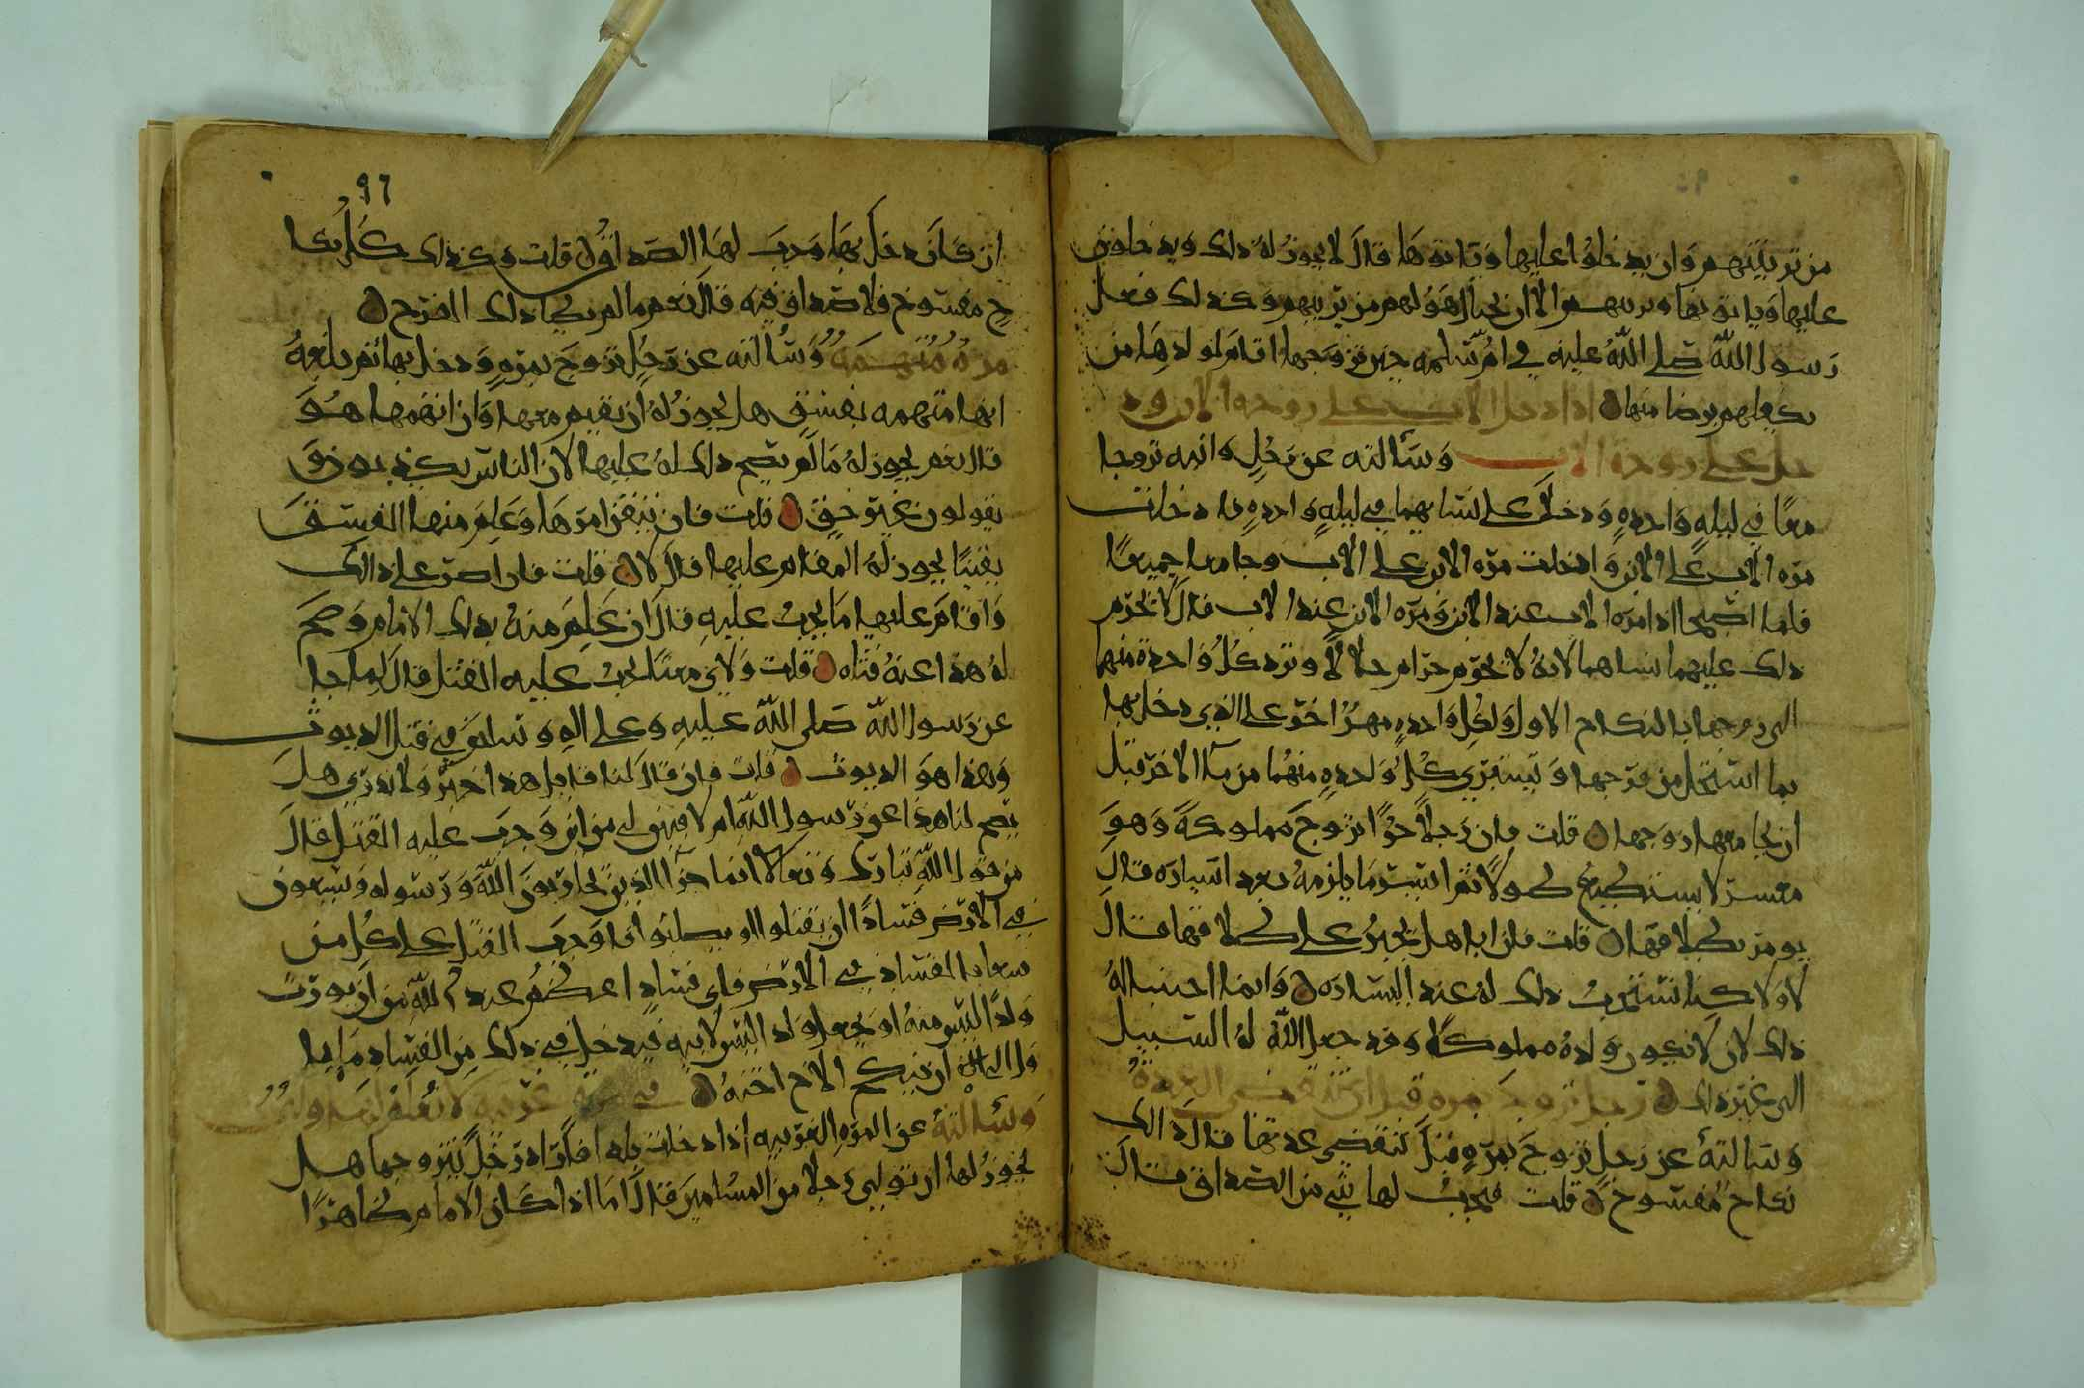 من تربيتهم وان يدخلوا عليها وياتوها قال لا يجوز له ذلك ويدخلون
عليها وياتونها الا ان يختار هو لهم من يربيهم وكذلك فعل
رسول الله صلى الله عليه في ام سلمه حين تزوجها اقام لولدها من
يكفلهم برضا منها اذا دخل الاب على زوجة الابن ودخل
على زوجة الاب وسالته عن رجل وابنه تزوجا
معا في ليله واحده ودخلا على نسايهما في ليله واحده فادخلت
مره الاب على الابن وادخلت مره الابن على الاب وجامعا جميعا
فلما اصبحا اذا مره الاب عند الابن ومره الابن عند الاب قال لا يحرم
ذلك عليهما نساهما لانه لا يحرم حرام حلالا وترد كل واحدة منهما
الى زوجها بالنكاح الاول ولكل واحده مهر اخر على الذي دخل بها
بما استحل من فرجها وتستبري كل واحده منهما من ما الاخر قبل
ان يجامعها زوجها قلت فان رجلا حرا تزوج مملوكة وهو
معسر لا يستطيع طولا ثم ايسر ما يلزمه بعد ايساره قال
يومر بطلاقها قلت فان ابا هل يجبر على طلاقها قال
لا ولاكنا نستحب ذلك له عند ايساره وانما احببنا له
ذلك لان لا يكون ولده مملوكا وقد جعل الله له السبيل
الى غير ذلك رجل تزوج بمره قبل ان تنقضي العدة
وسالته عن رجل تزوج بمره قبل تنقضي عدتها قال ذلك
نكاح مفسوخ قلت فيجب لها شي من الصداق قال
٩٦
ان كان دخل بها وجب لها الصداق قلت وكذلك كل نكا
ح مفسوخ فلا صداق فيه قال نعم ما لم يطا ذلك الفرج
مره متهمه وسالته عن رجل تزوج بمره ودخل بها ثم بلغه
انها متهمه بفسق هل يجوز له ان يقيم معها وان اتهمها هو
قال نعم يجوز له ما لم يصح ذلك له عليها لان الناس يكذبون و
يقولون غير حق قلت فان تيقن امرها وعلم منها الفسق
يقينا يجوز له المقام عليها قال لا قلت فان اصر على ذالك
واقام عليها ما يجب عليه قال ان علم منه بذلك الامام وصح
له هذا عنه قتله قلت ولاي معنا يجب عليه القتل قال لما جا
عن رسول الله صلى الله عليه وعلى اله وسلم في قتل الديوث
وهذا هو الديوث قلت فان قال لنا قايل هذا خبر ولا ندري هل
يصح لنا هذا عن رسول الله ام لا فبين لي من اين وجب عليه القتل قال
من قول الله تبارك وتعالا انما جزا الذين يحاربون الله ورسوله ويسعون
في الارض فسادا ان يقتلوا او يصلبوا فاوجب القتل على كل من
سعا بالفساد في الارض فاي فساد اعظم عند الله من ان يورث
ولدا ليس منه او يجعل ولد ليس لابيه فيدخل في ذلك من الفساد ما
ان ينكح الاخ اخته في مره غريبه لا يعلم لها ولي
وسالته عن المره الغريبه اذا دخلت بلدا فاراد رجل تزوجها هل
يجوز لها ان تولي رجلا من المسلمين قال اما اذا كان الامام ظاهرا